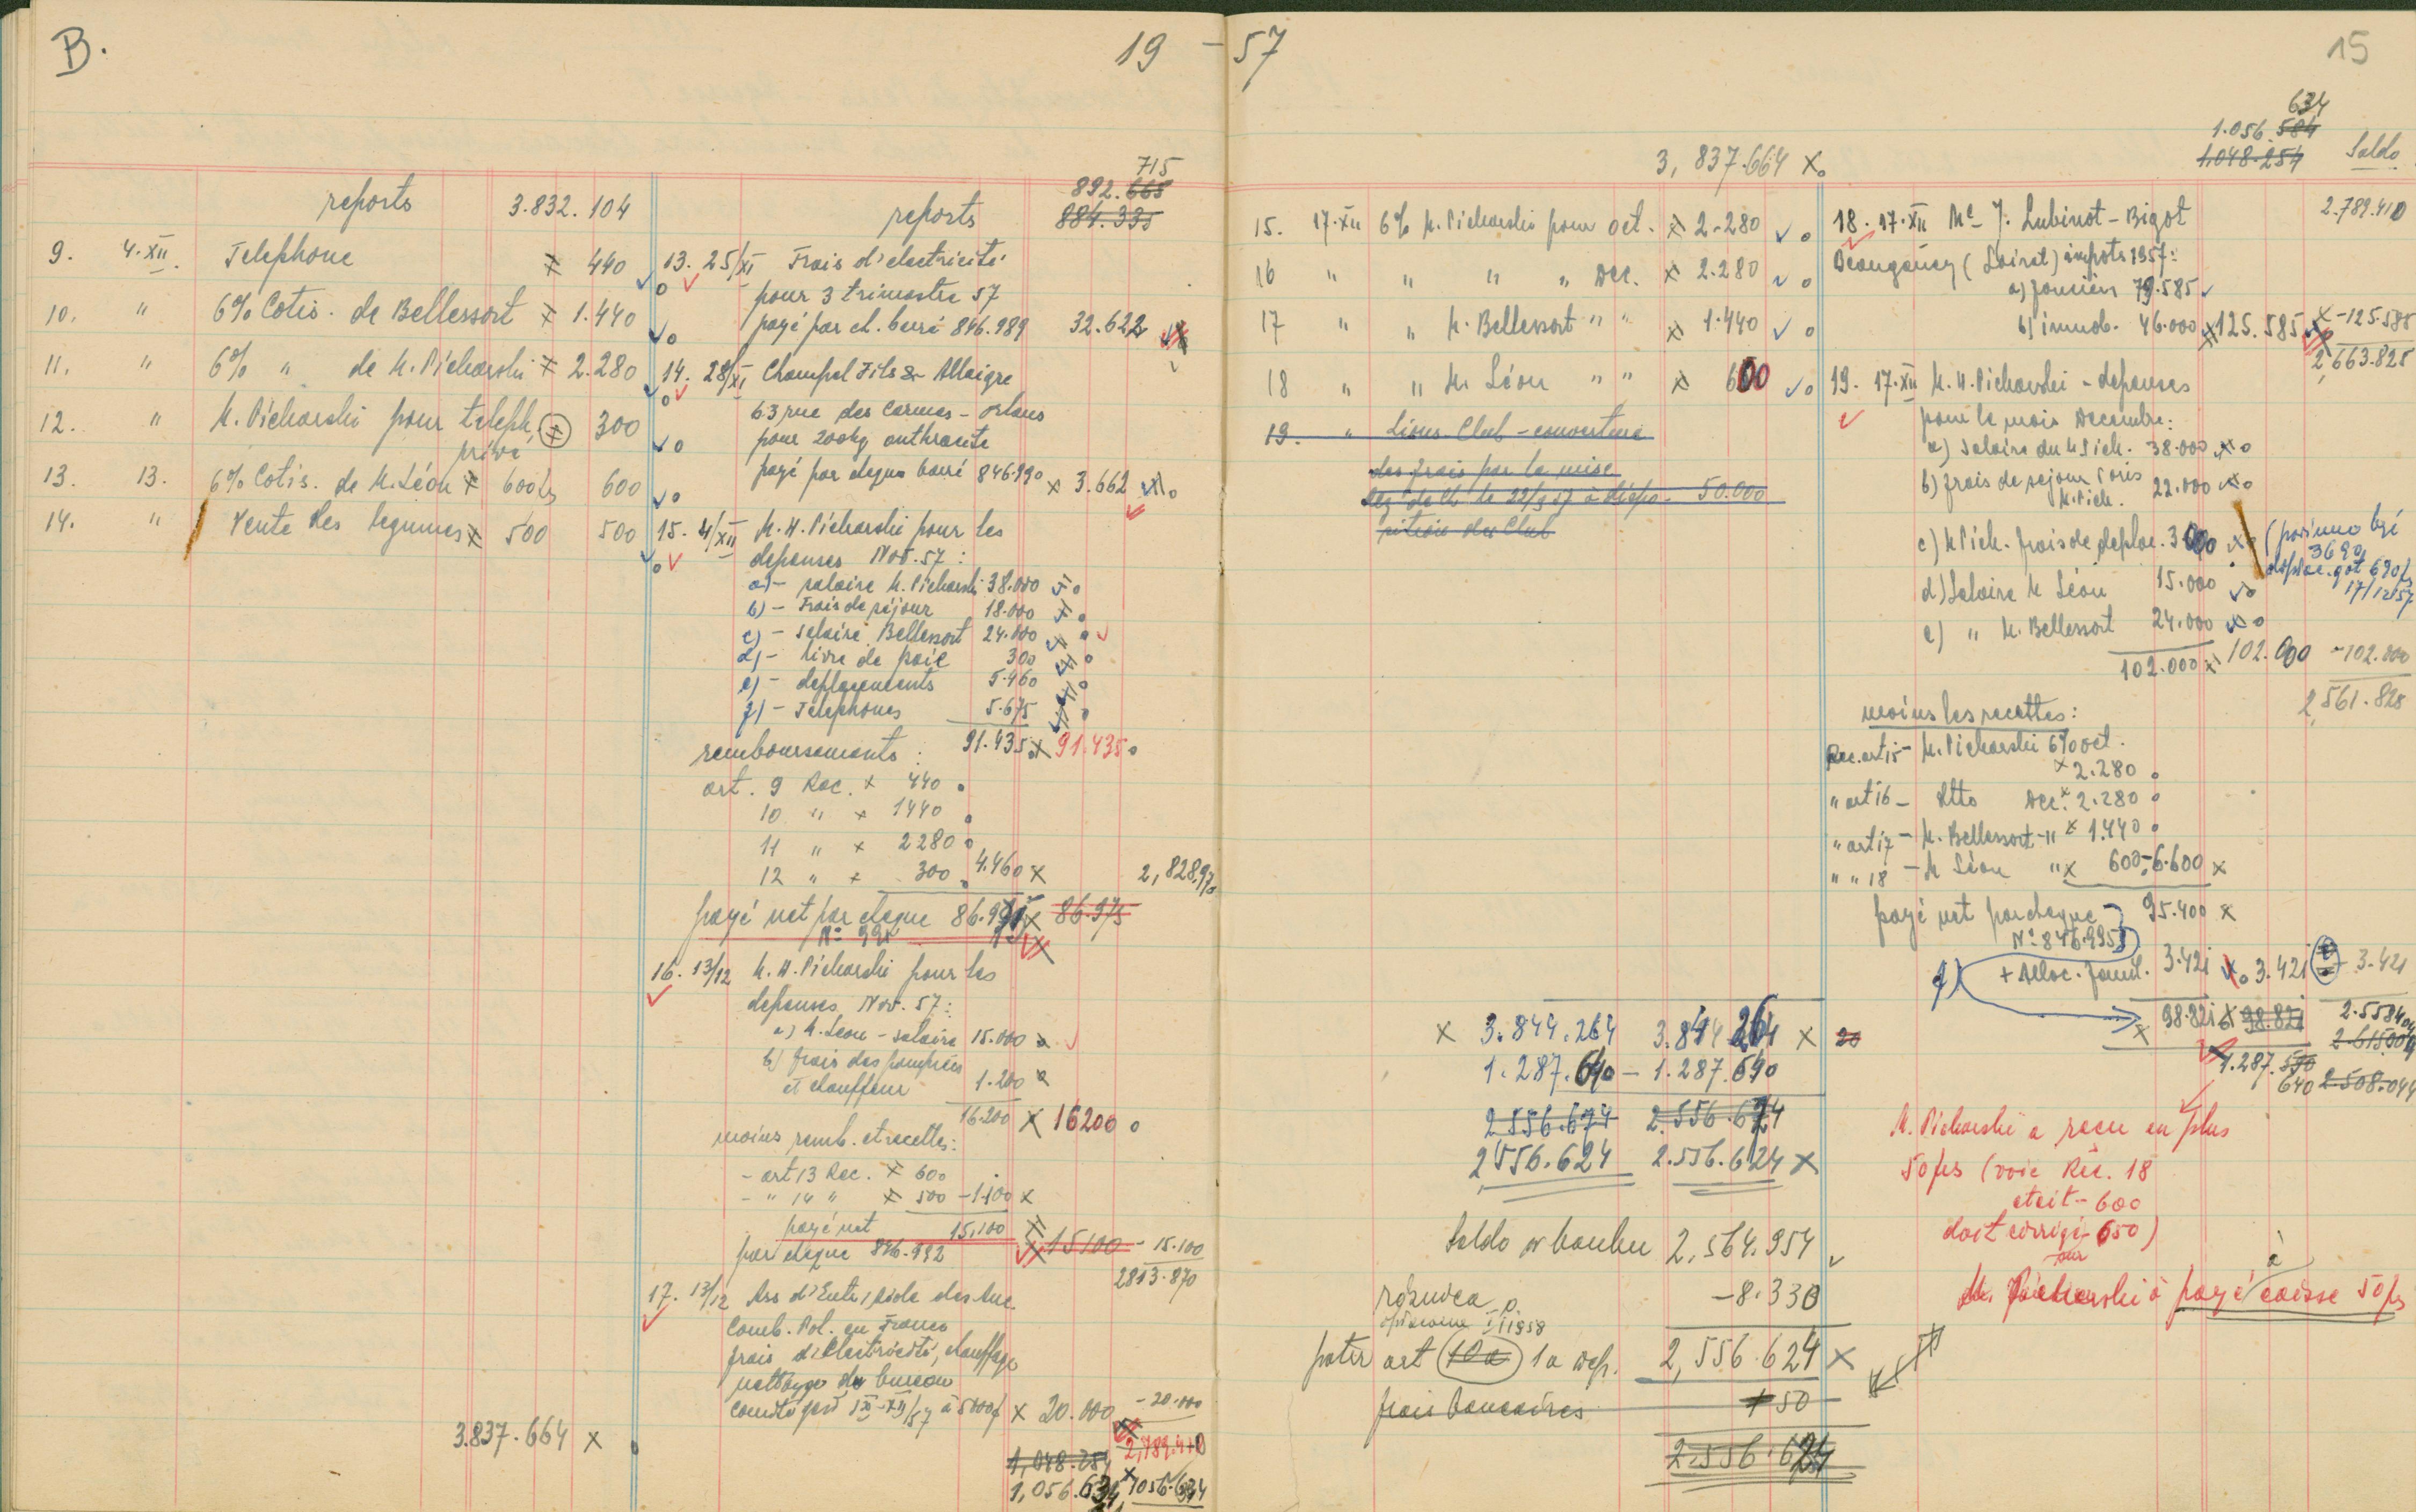 B.
19 - 57
15
reports 3.832.104
9. 4.XII. Telephone 440
10. " 6% Cotis. de Bellessort 1.440
11. " 6% " de M. Picharski 2.280
12. " M. Picharski pour teleph. 300
privé
13. 13. 6% Cotis. de M. Léon 600 600
14. " Vente des legumes 500 500
3.837.664 x
715
892.665
reports 884.335
13. 25/XI Frais d'electricité
pour 3 trimestre 57
payé par ch. barré 846.989 32.622
14. 28/XI Champel Fils & Allaigre
63 rue des Carmes - Orleans
pour 200kg anthracite
payé par cheque barré 846990 x 3.662
15. 4/XII M. H. Picharski pour les
depenses Nov. 57:
a) - salaire M. Picharski 38.000
b) - Frais de séjour 18.000
c) - salaire Bellessort 24.000
d) - livre de paie 300
e) - deplacements 5.460
f) - Telephones 5.675
remboursements: 91.435 x 91.435
art. 9 Rec. x 440
10 " x 1440
11 " x 2280
12 " x 300 4.460 x
2,828.970
payé net par cheque 86.975 x 86.975
No 991
16. 13/12 M. H. Picharski pour les
depenses Nov. 57:
a) M. Leon - salaire 15.000
b) frais des pompiers
et chauffeur 1.200
16.200 x 16200
moins remb. et recettes:
- art 13 Rec. x 600
- " 14 " x 500 - 1.100 x
payé net 15.100 15100 - 15.100
par cheque 846.992
2813.870
17. 13/12 Ass d'Entr'Aide des Anc.
Comb. Pol. en France
frais d'electricité, chauffage
nettoyage du bureau
IX-XII/57 à 5000f x 20.000 - 20.000
2,789.410
1,048.254
1,056.634 x 1056.634
3,837.664 x
15. 17.XII 6% M. Picharski pour oct. x 2.280
16 " " " " Dec. x 2.280
17 " " M. Bellessort " " x 1.440
18 " " M. Léon " " x 600
19. " Lions Club - couverture
des frais par la mise
à dispo- 50.000
sition du Club
x 3.844.264 3.844.264 x 20
1.287.640 - 1.287.640
2 556.674 2.556.674
2 556.624 2.556.624 x
Saldo w banku 2,564.954
różnica p. - 8.330
opłacone 1 I 1958
patrz art 10a 1a wyp. 2,556.624 x
frais bancaires + 50
2.556.624
634
1.056.584
1.048.254 Saldo
2.789.410
18. 17.XII Me J. Lubinot-Bigot
Beaugency (Loiret) impots 1957:
a) fonciers 79.585
b) immob. 46.000 x 125.585 - 125.585
2,663.825
19. 17.XII M. H. Picharski - depenses
pour le mois Decembre:
a) Salaire du M Pich. 38.000
b) frais de sejour Paris 22.000
M. Pich.
c) M Pich. frais de deplac. 3000 (powinno być
3690
dopłac. got 690 fr
17/12 57
d) Salaire M Léon 15.000
e) " M. Bellessort 24.000
102.000 x 102.000 - 102.000
2,561.825
moins les recettes:
Rec. art 15 - M. Picharski 6% oct.
x 2.280
" art 16 - dtto Dec. x 2.280
" art 17 - M. Bellessort - " x 1.440
" " 18 - M Léon " x 600 - 6.600 x
payé net par cheque 95.400 x
No 846.995
f) + Alloc. famil. 3.421 3.421 - 3.421
98.821 x 98.821 2.558404
2.615004
1.287.590
640 2.508.044
M. Picharski a recu en plus
50 frs (voir Rec. 18
etait - 600
doit corrigé 650)
sur
M. Picharski à payé à caisse 50 frs